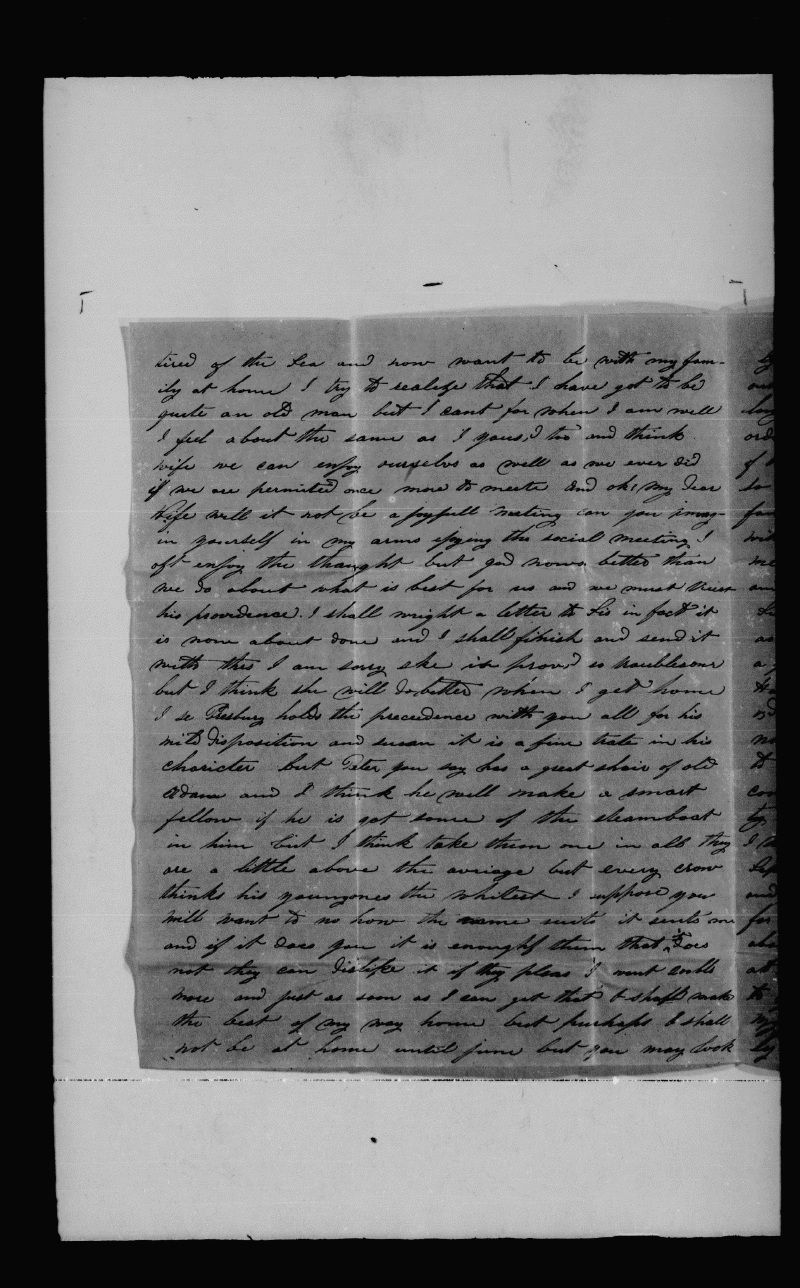 tired of the Sea and now want to be with my fam-
ily at home I try to realize that I have got to be
quite an old man but I cant for when I am well
I feel about the same as I yous,d too and think
wife we can enjoy ourselvs as well as we ever did
if we are permited once more to meete and oh! my dear
Wife will it not be a joyfull meeting can you imag-
in yourself in my arms ejoying the social meeting I
oft enjoy the thaught but god nows better than
we do about what is best for us and we must trust
his providence. I shall wright a letter to Lis in fact it
is now about done and I shall finish and send it
with this I am sorry she is prov,d so troublesome
but I think she will do better when I get home
I se Presbury holds the precedence with you all for his
mild disposition and susan it is a fine trate in his
charicter but Peter you say has a great shair of old
Adam and I think he will make a smart
fellow if he is got some of the steamboat
in him but I think take them one in all they
are a little above the avriage but every crow
thinks his youngones the whitest I suppose you
will want to no how the name suits it suits me
and if it does you it is enough if them that it does
not they can dislike it if they pleas I want
more and just as soon as I can get that I shall make
the best of my way home but purhaps I shall
not be at home until june but you may look